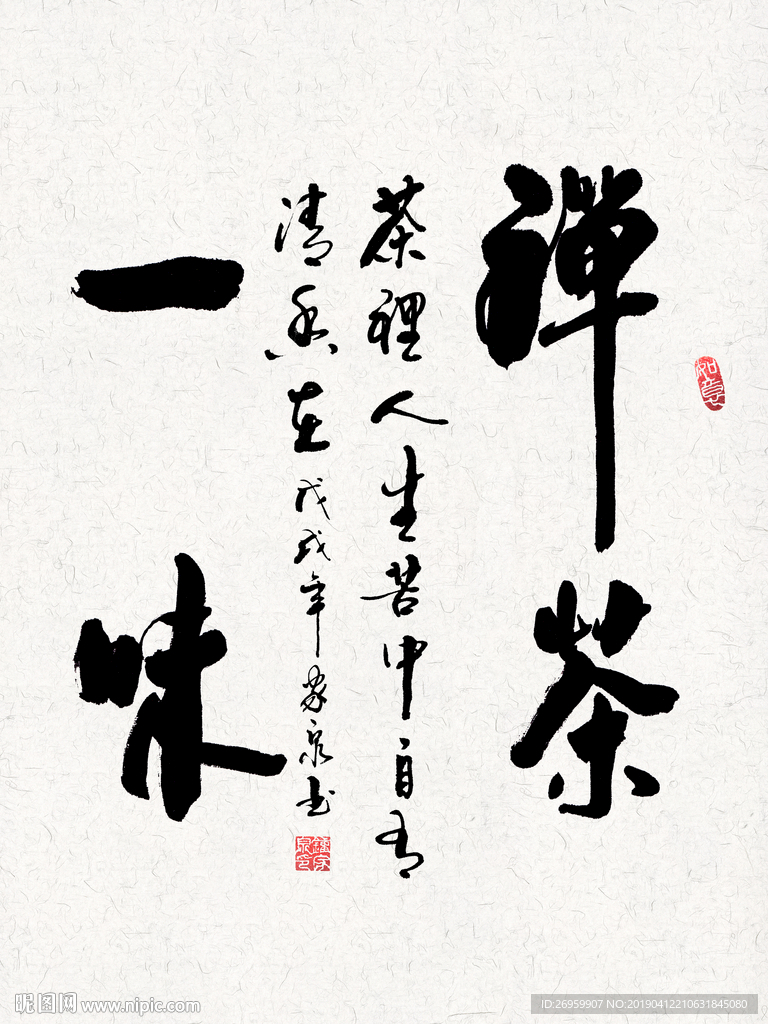 禪茶
一味
茶裡人生苦中自有
清香在 戊戌年家泉书
如意
昵图网 www.nipic.com
ID:26959907 NO:20190412210631845080